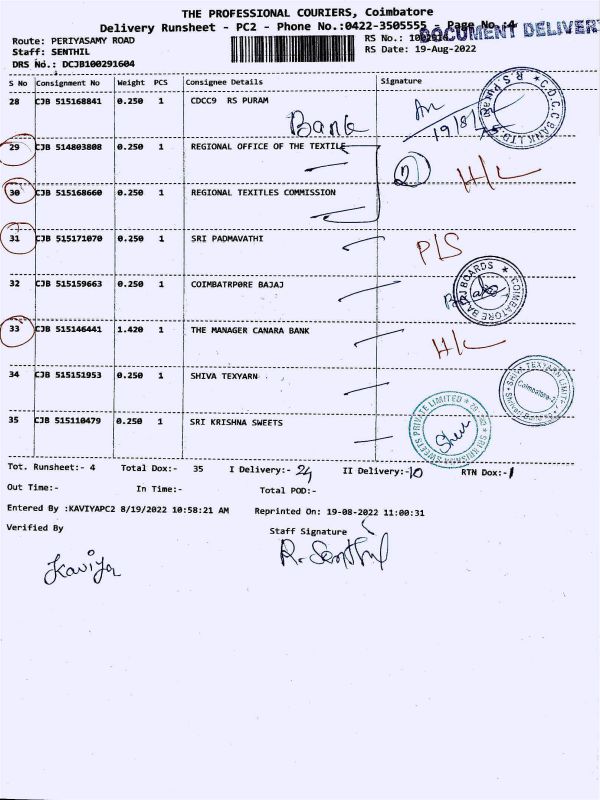 THE PROFESSIONAL COURIERS, Coimbatore
Delivery Runsheet - PC2 - Phone No.:0422-3505555 Page No.:4
DOCUMENT DELIVER
Route: PERIYASAMY ROAD RS No.:
Staff: SENTHIL RS Date: 19-Aug-2022
DRS No.: DCJB100291604
S No Consignment No Weight PCS Consignee Details Signature
28 CJB 515168841 0.250 1 CDCC9 RS PURAM
Bank
19/8/
C.D.C.C. BANK LTD. R.S. Puram
29 CJB 514803808 0.250 1 REGIONAL OFFICE OF THE TEXTILE
2 H/L
30 CJB 515168660 0.250 1 REGIONAL TEXITLES COMMISSION
31 CJB 515171070 0.250 1 SRI PADMAVATHI P/S
32 CJB 515159663 0.250 1 COIMBATRPØRE BAJAJ
COIMBATORE BAJAJ BOARDS
33 CJB 515146441 1.420 1 THE MANAGER CANARA BANK H/L
34 CJB 515151953 0.250 1 SHIVA TEXYARN
SHIVA TEXYARN LIMITED Coimbatore-2
35 CJB 515110479 0.250 1 SRI KRISHNA SWEETS
SRI KRISHNA SWEETS PRIVATE LIMITED
Tot. Runsheet:- 4 Total Dox:- 35 I Delivery:- 24 II Delivery:-10 RTN Dox:-1
Out Time:- In Time:- Total POD:-
Entered By :KAVIYAPC2 8/19/2022 10:58:21 AM Reprinted On: 19-08-2022 11:00:31
Verified By Staff Signature
Kaviya R. Senthil